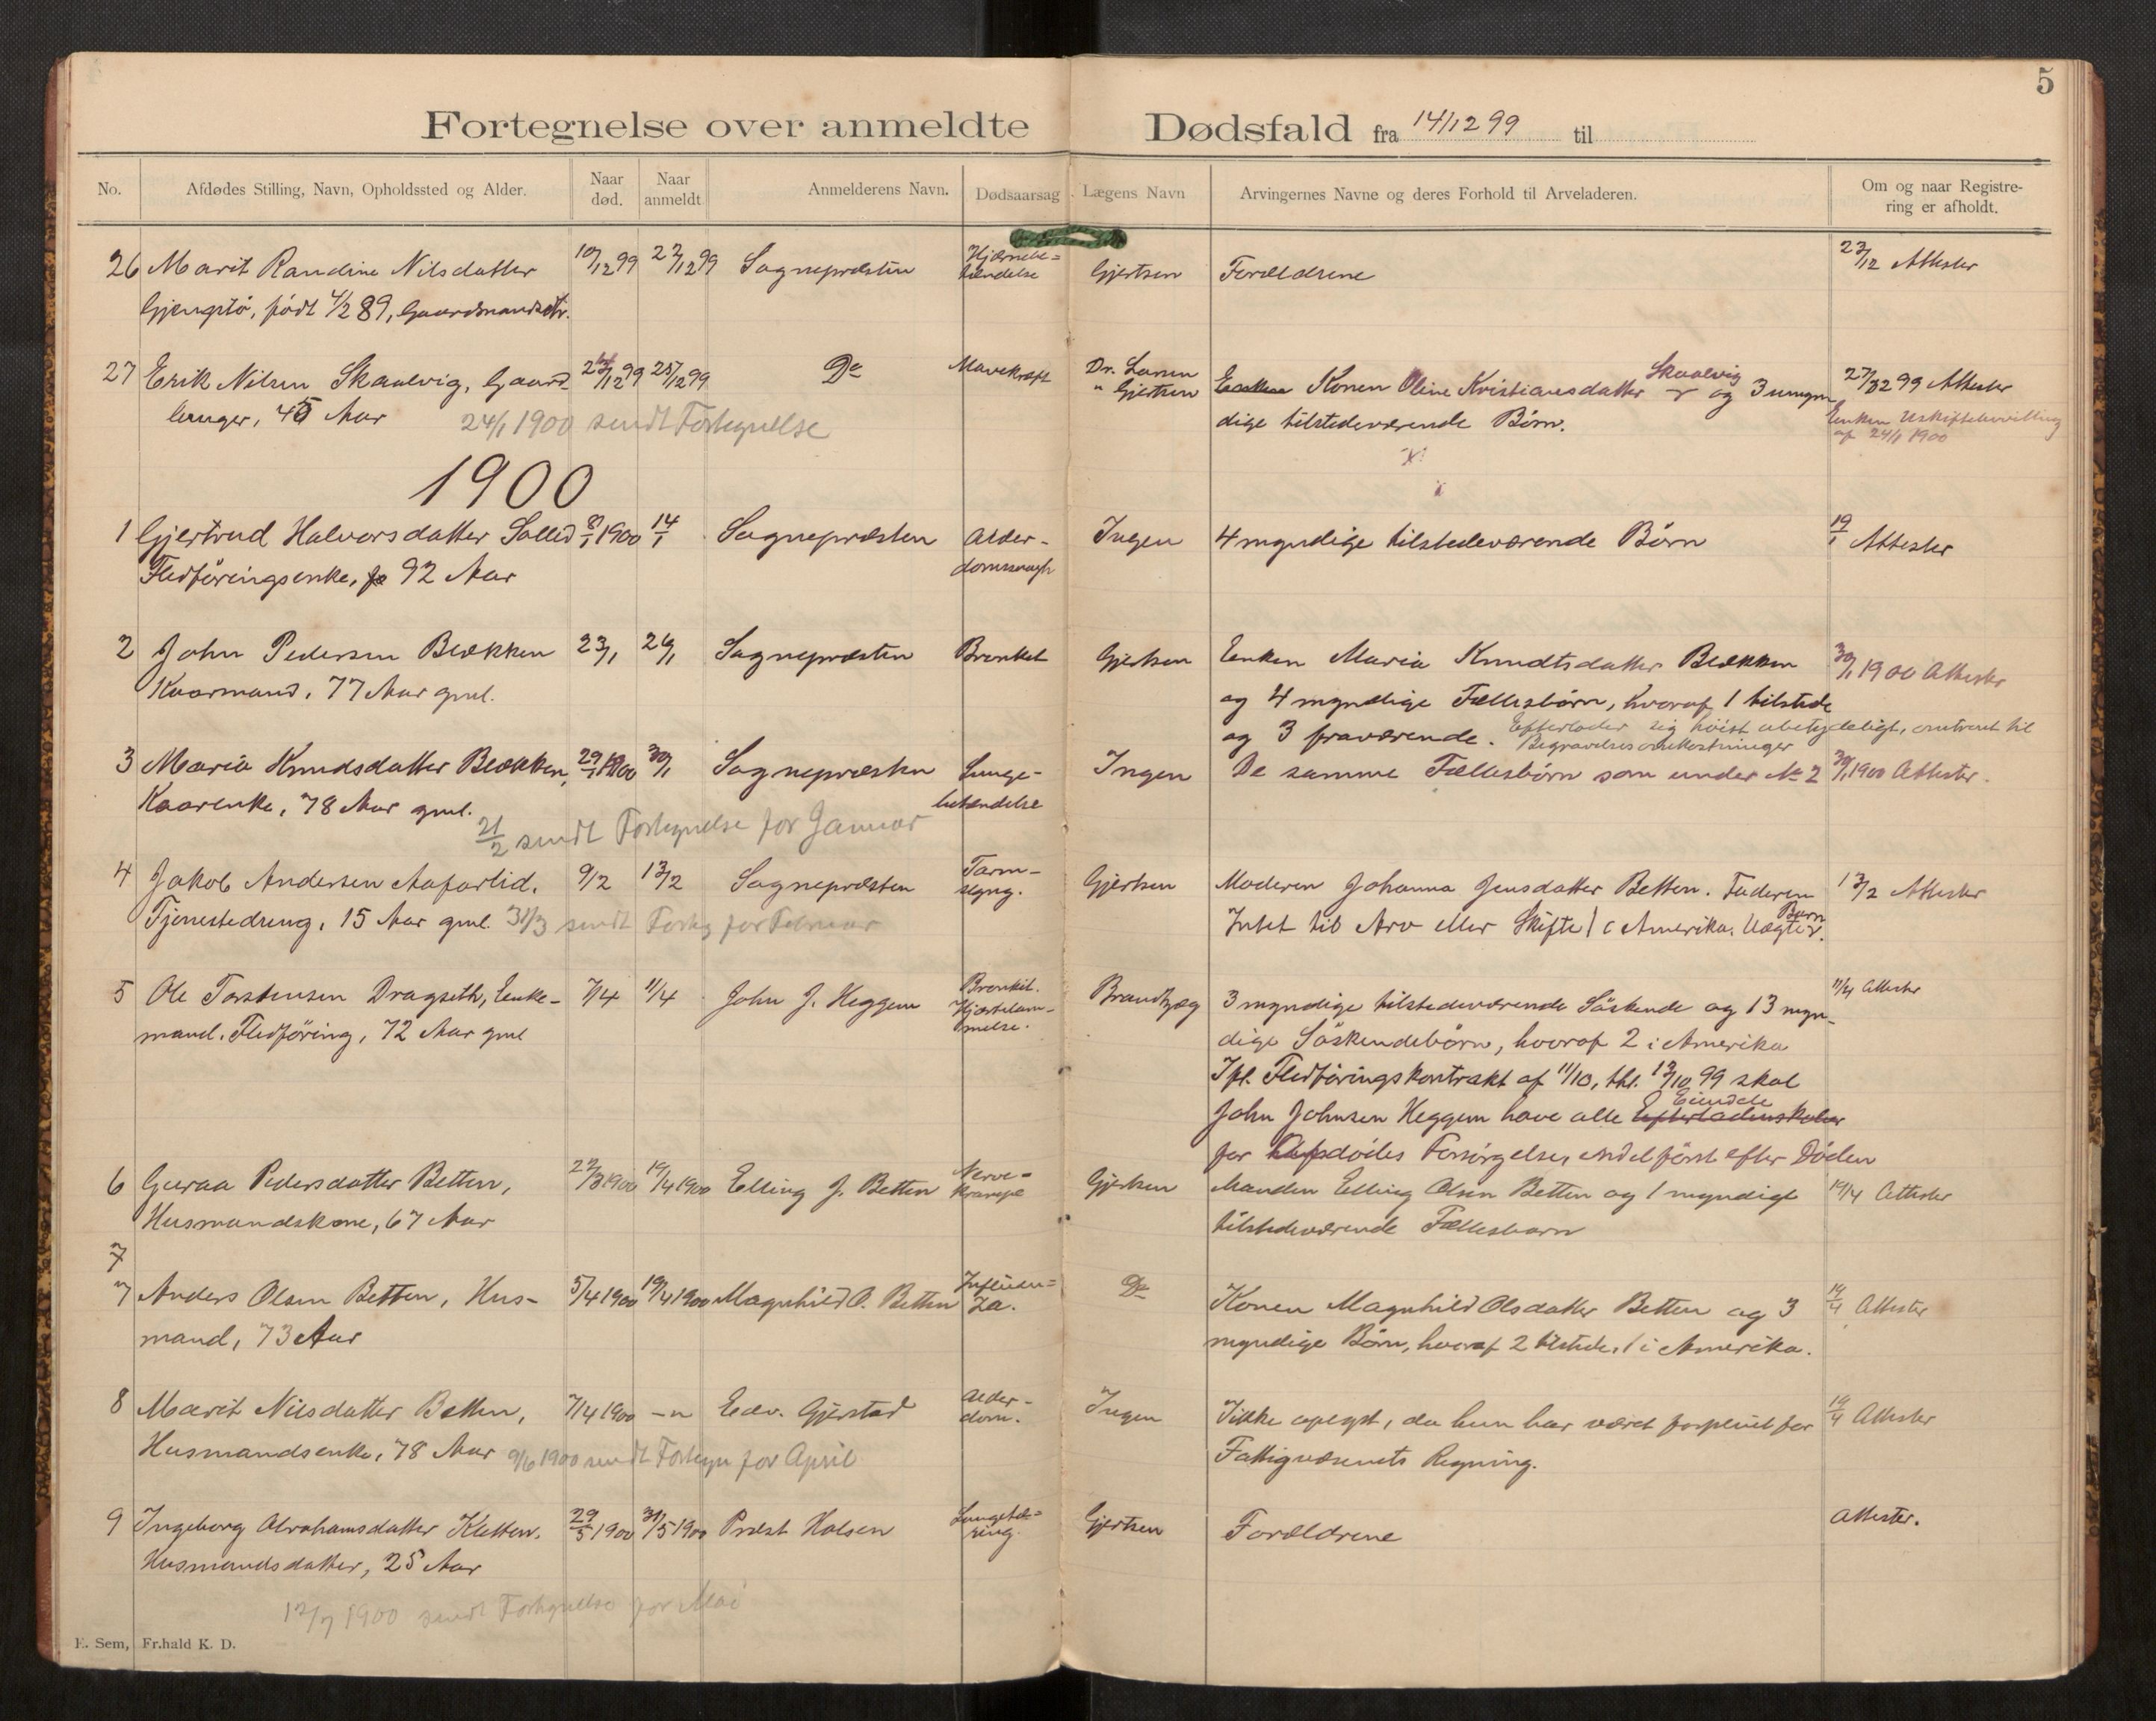 5
Fortegnelse over anmeldte Dødsfald fra 14/12 99 til
No. Afdødes Stilling, Navn, Opholdssted og Alder. Naar død. Naar anmeldt Anmelderens Navn. Dødsaarsag Lægens Navn Arvingernes Navne og deres Forhold til Arveladeren. Om og naar Registrering er afholdt.
26 Marit Randine Nilsdatter 10/12 99 23/12 99 Sognepræsten Hjærnebe= Gjertsen Forældrene 23/12 Attester
Gjengstö, födt 4/2 89, Gaardmandsdtr. tændelse
27 Erik Nilsen Skaalvig, Gaard- 12 99 28/12 99 Do Mavekræft Dr. Larsen Konen Oline Kristiansdatter Skaalvig og 3 umyn 12 99 Attester
bruger, 45 Aar 24/1 1900 sendt Fortegnelse " Gjertsen dige tilstedeværende Børn. Enken Uskiftebevilling
af 24/1 1900
1900
1 Gjertrud Halvorsdatter Sollid 8/1 1900 14/1 Sognepræsten Alder- Ingen 4 myndige tilstedeværende Børn 19/1 Attester
Flødföringsenke, 92 Aar domssvagh
2 John Pedersen Blækken 23/1 26/1 Sognepræsten Bronkit Gjertsen Enken Maria Knudtsdatter Blækken 30/1 1900 Attester
Kaarmand, 77 Aar gml. og 4 myndige Fællesbörn, hvoraf 1 tilstede
og 3 fraværende. Efterlader sig höist ubetydeligt, omtrent til
Begravelsesomkostninger
3 Maria Knudsdatter Blækken, 29/1 1900 30/1 Sognepræsten Lunge- Ingen De samme Fællesbörn som under No 2 30/1 1900 Attester.
Kaarenke, 78 Aar gml. betændelse
21/2 sendt Fortegnelse for Januar
4 Jakob Andersen Aafarlid. 9/2 13/2 Sognepræsten Tarm- Gjertsen Moderen Johanna Jensdatter Betten. Faderen 13/2 Attester
Tjenestedreng, 15 Aar gml. 31/3 sendt Forteg for Februar slyng. Intet til Arv eller Skifte / i Amerika. Uægte Barn.
5 Ole Torstensen Dragseth, Enke- 7/4 11/4 John J. Heggem Bronkit. Brandtzæg 3 myndige tilstedeværende Söskende og 13 myn- 11/4 Attester
mand. Fledföring, 72 Aar gml Hjærtelam-
melse. dige Söskendebörn, hvoraf 2 i Amerika
Ifl. Fledföringskontrakt af 11/10, thl. 13/10 99 skal
John Johnsen Heggem have alle Efterladenskaber Eiendele
for Afdödes Forsörgelse, endel först efter Döden
6 Guraa Pedersdatter Betten, 3 1900 19/4 1900 Elling J. Betten Nerve= Gjertsen Manden Elling Olsen Betten og 1 myndigt 19/4 Attester
Husmandskone, 67 Aar krampe tilstedeværende Fællesbarn
7
7 Anders Olsen Betten, Hus- 5/4 1900 19/4 1900 Magnhild O. Betten Influen= Do Konen Magnhild Olsdatter Betten og 3 19/4 Attester
mand, 73 Aar za. myndige Börn, hvoraf 2 tilstede, 1 i Amerika.
8 Marit Nilsdatter Betten, 7/4 1900 -"- Edv. Gjerstad Alder- Ingen Ikke opgit, da hun har været forpleiet for 19/4 Attester
Husmandsenke, 78 Aar 9/6 1900 sendt Fortegn for April dom. Fattigvæsenets Regning.
9 Ingeborg Abrahamsdatter Kletten, 29/5 1900 31/5 1900 Præst Holsen Lungetæ= Gjertsen Forældrene Attester.
Husmandsdatter, 25 Aar ring.
12/7 1900 sendt Fortegnelse for Mai
E. Sem, Fr.hald K. D.